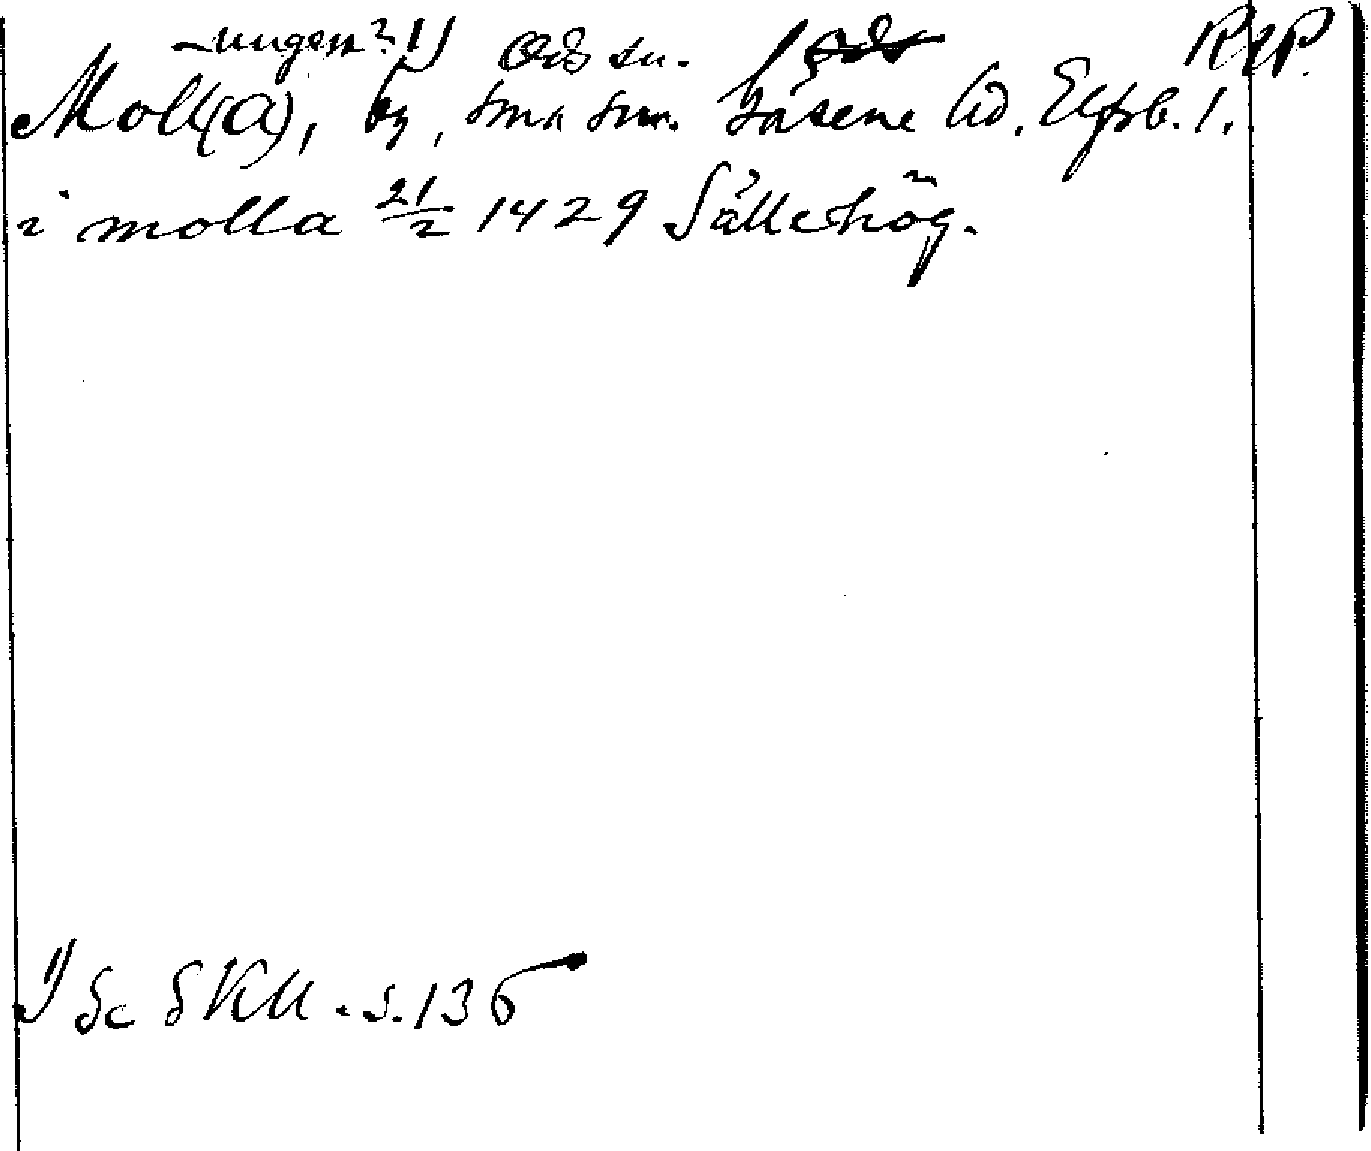 -ungen? 1) Ods sn. RAP.
Moll(a), by, Gåsene hd. Elfsb. l.
i molla 21/2 1429 Sällehög.
1) Se SKU. s. 136